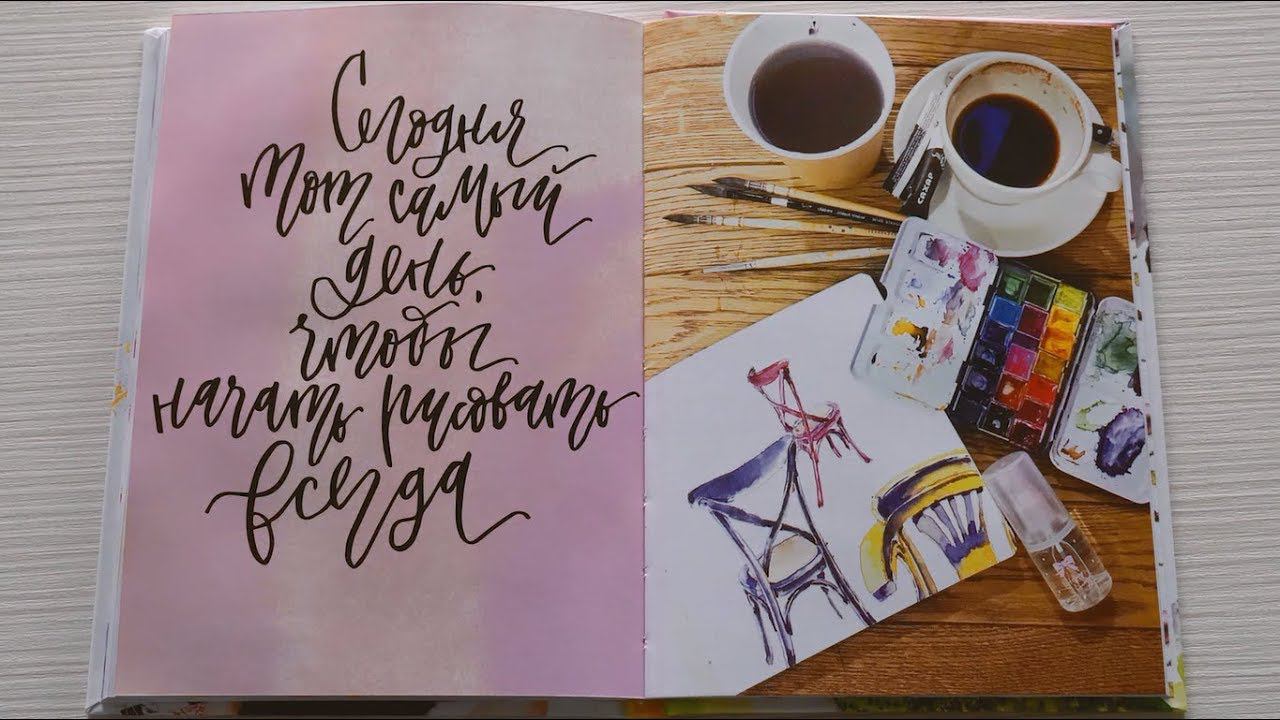 Сегодня
тот самый
день,
чтобы
начать рисовать
всегда
сахар